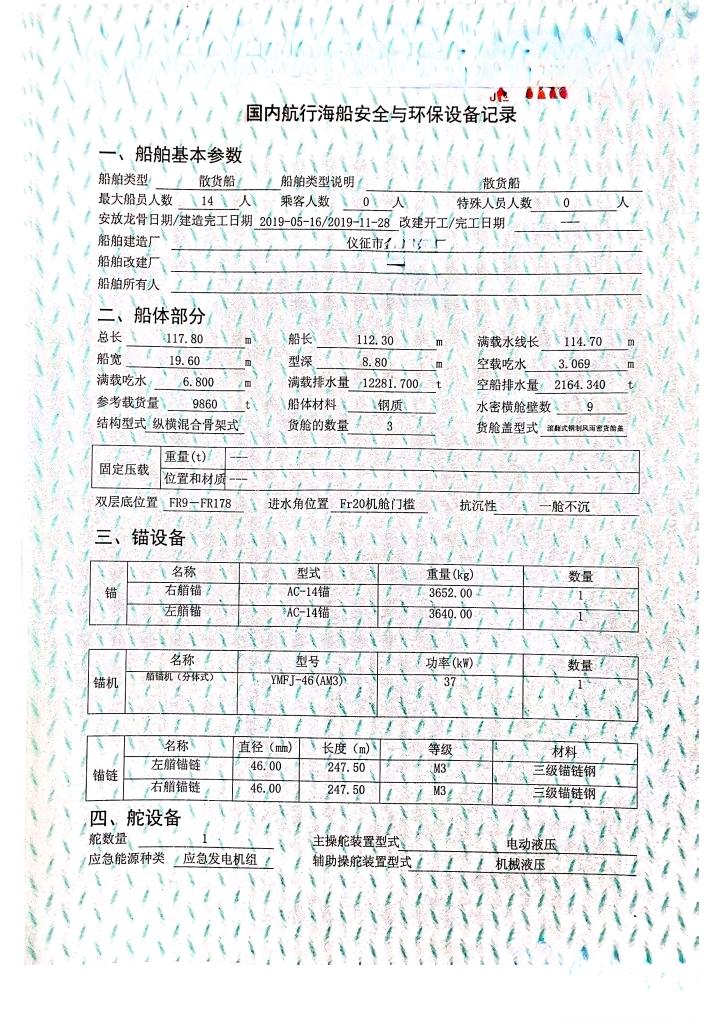 国内航行海船安全与环保设备记录
一、船舶基本参数
船舶类型 散货船 船舶类型说明 散货船
最大船员人数 14 人 乘客人数 0 人 特殊人员人数 0 人
安放龙骨日期/建造完工日期 2019-05-16/2019-11-28 改建开工/完工日期 ---
船舶建造厂 仪征市 厂
船舶改建厂
船舶所有人
二、船体部分
总长 117.80 m 船长 112.30 m 满载水线长 114.70 m
船宽 19.60 m 型深 8.80 m 空载吃水 3.069 m
满载吃水 6.800 m 满载排水量 12281.700 t 空船排水量 2164.340 t
参考载货量 9860 t 船体材料 钢质 水密横舱壁数 9
结构型式 纵横混合骨架式 货舱的数量 3 货舱盖型式 滚翻式钢制风雨密货舱盖
固定压载 重量(t) ---
位置和材质 ---
双层底位置 FR9－FR178 进水角位置 Fr20机舱门槛 抗沉性 一舱不沉
三、锚设备
锚 名称 型式 重量(kg) 数量
右艏锚 AC-14锚 3652.00 1
左艏锚 AC-14锚 3640.00 1
锚机 名称 型号 功率(kW) 数量
艏锚机（分体式） YMFJ-46(AM3) 37 1
锚链 名称 直径（mm) 长度（m) 等级 材料
左艏锚链 46.00 247.50 M3 三级锚链钢
右艏锚链 46.00 247.50 M3 三级锚链钢
四、舵设备
舵数量 1 主操舵装置型式 电动液压
应急能源种类 应急发电机组 辅助操舵装置型式 机械液压